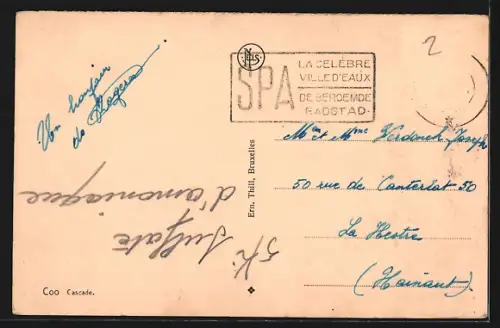 2
SPA
LA CELÈBRE
VILLE D'EAUX
DE BEROEMDE
BADSTAD
Un bonjour
de Roger
Mr et Mme Verdonck Joseph
50 rue de Canterlat 50
La Hestre
(Hainaut)
5 K Sulfate
d'amoniaque
Ern. Thill, Bruxelles
Coo Cascade.